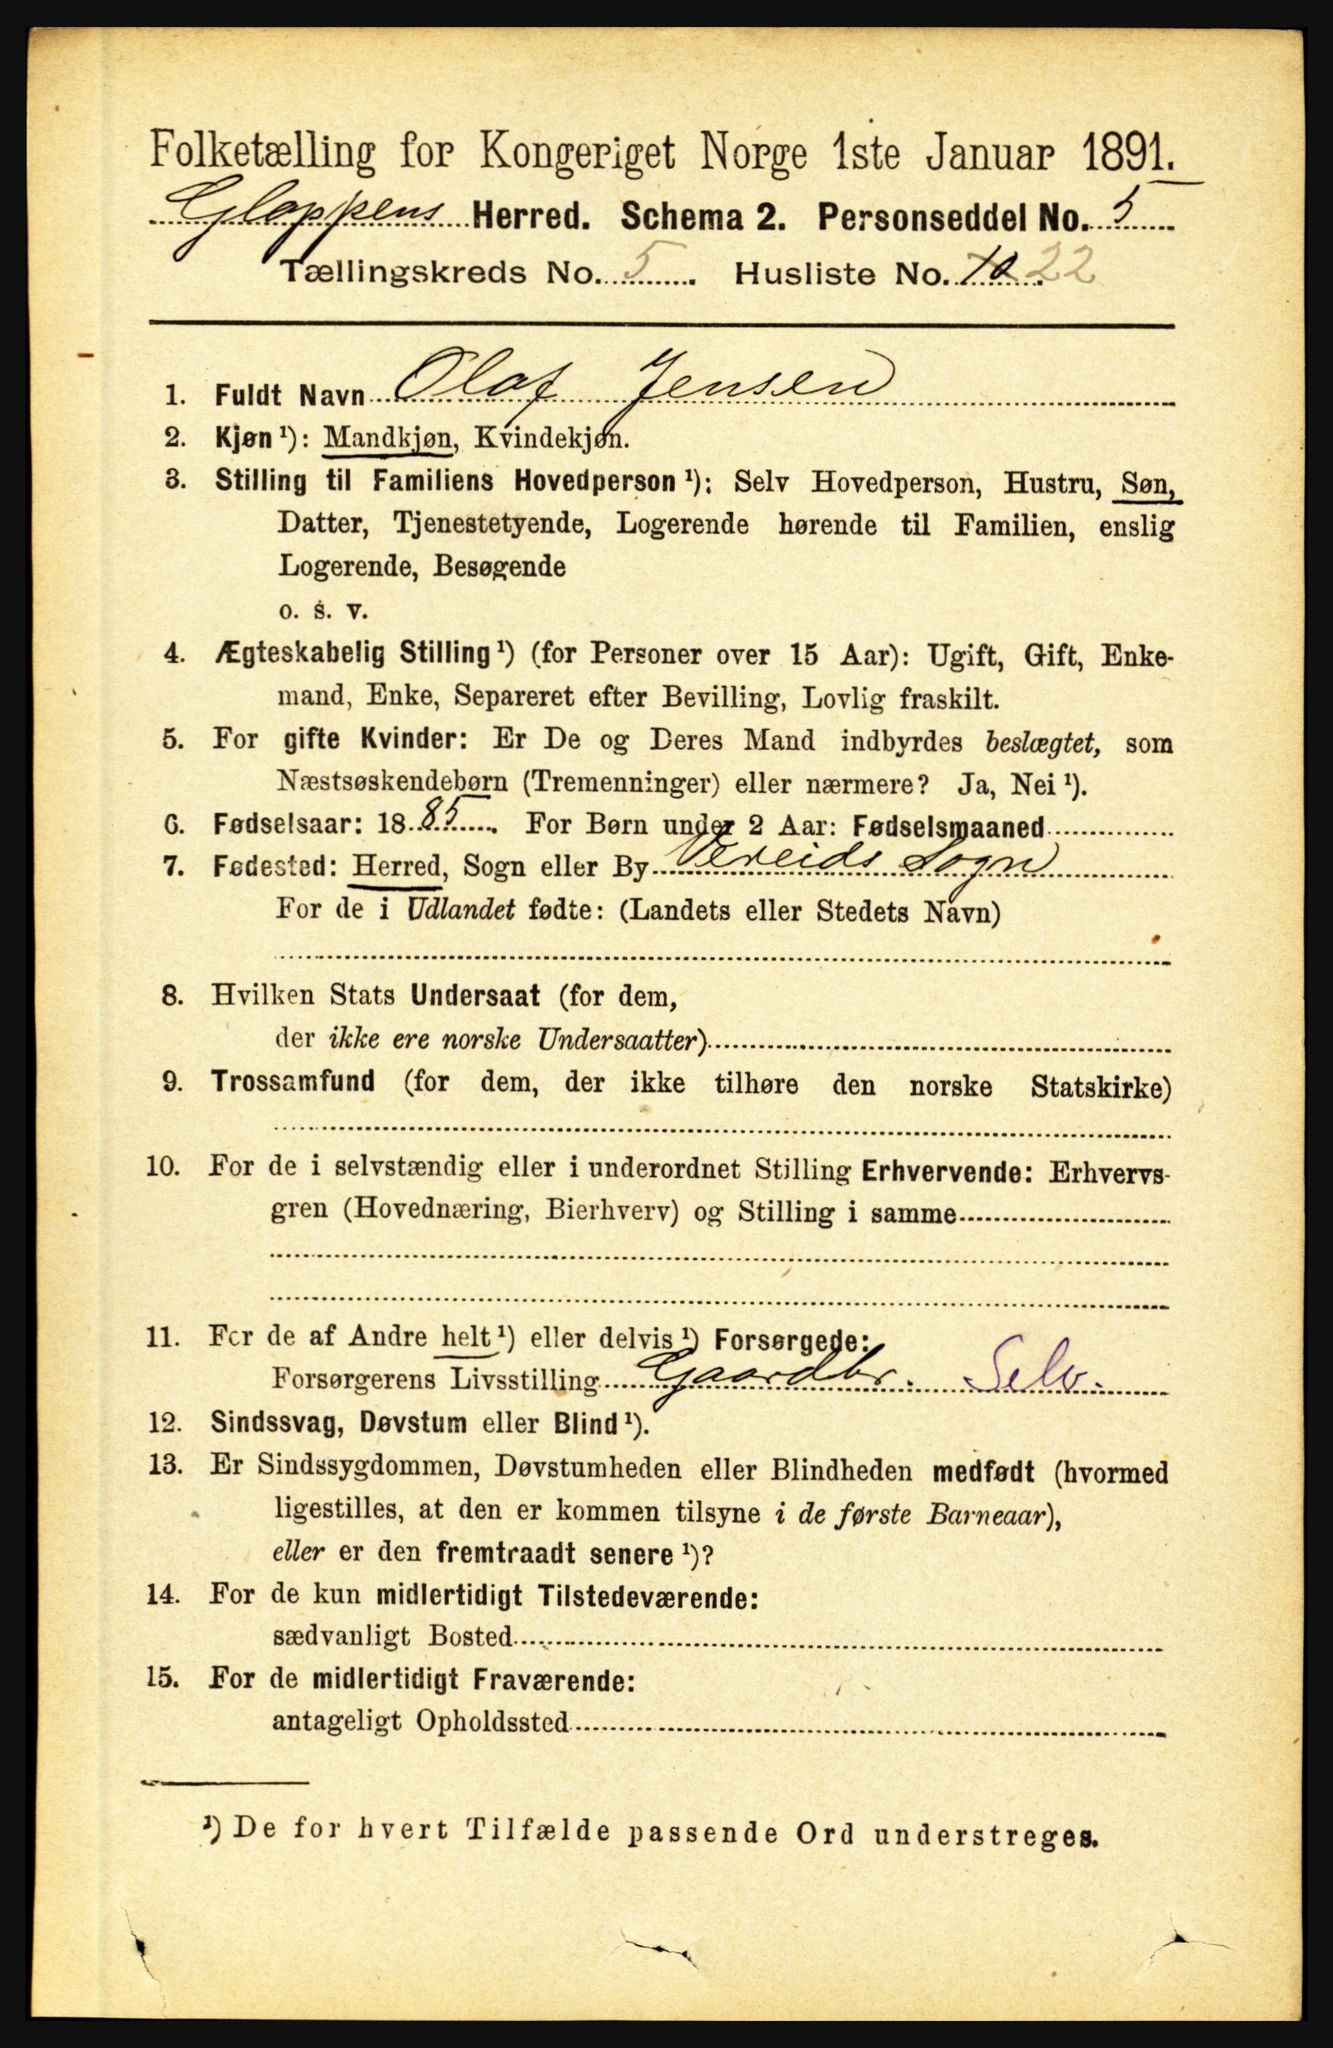 Folketælling for Kongeriget Norge 1ste Januar 1891.
Gloppens Herred. Schema 2. Personseddel No. 5
Tællingskreds No. 5. Husliste No. 10 22
1. Fuldt Navn Olaf Jensen
2. Kjøn¹): Mandkjøn, Kvindekjøn.
3. Stilling til Familiens Hovedperson¹): Selv Hovedperson, Hustru, Søn,
Datter, Tjenestetyende, Logerende hørende til Familien, enslig
Logerende, Besøgende
o. s. v.
4. Ægteskabelig Stilling¹) (for Personer over 15 Aar): Ugift, Gift, Enke-
mand, Enke, Separeret efter Bevilling, Lovlig fraskilt.
5. For gifte Kvinder: Er De og Deres Mand indbyrdes beslægtet, som
Næstsøskendebørn (Tremenninger) eller nærmere? Ja, Nei¹).
6. Fødselsaar: 1885. For Børn under 2 Aar: Fødselsmaaned
7. Fødested: Herred, Sogn eller By Vereids Sogn
For de i Udlandet fødte: (Landets eller Stedets Navn)
8. Hvilken Stats Undersaat (for dem,
der ikke ere norske Undersaatter)
9. Trossamfund (for dem, der ikke tilhøre den norske Statskirke)
10. For de i selvstændig eller i underordnet Stilling Erhvervende: Erhvervs-
gren (Hovednæring, Bierhverv) og Stilling i samme
11. For de af Andre helt¹) eller delvis¹) Forsørgede:
Forsørgerens Livsstilling Gaardbr. Selv.
12. Sindssvag, Døvstum eller Blind¹).
13. Er Sindssygdommen, Døvstumheden eller Blindheden medfødt (hvormed
ligestilles, at den er kommen tilsyne i de første Barneaar),
eller er den fremtraadt senere¹)?
14. For de kun midlertidigt Tilstedeværende:
sædvanligt Bosted
15. For de midlertidigt Fraværende:
antageligt Opholdssted
¹) De for hvert Tilfælde passende Ord understreges.